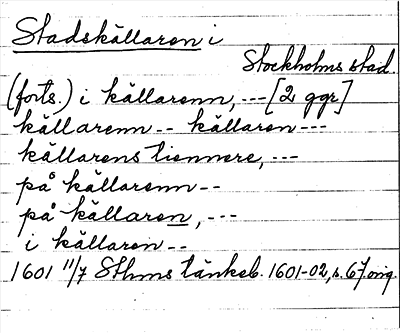 Stadskällaren i
Stockholms stad.
(forts.) i källarenn, --- [2 ggr]
källarenn -- källaren ---
källarens tiennere, ---
på källarenn --
på källaren, ---
i källaren --
1601 11/7 Sthms tänkeb. 1601-02, s. 67 orig.